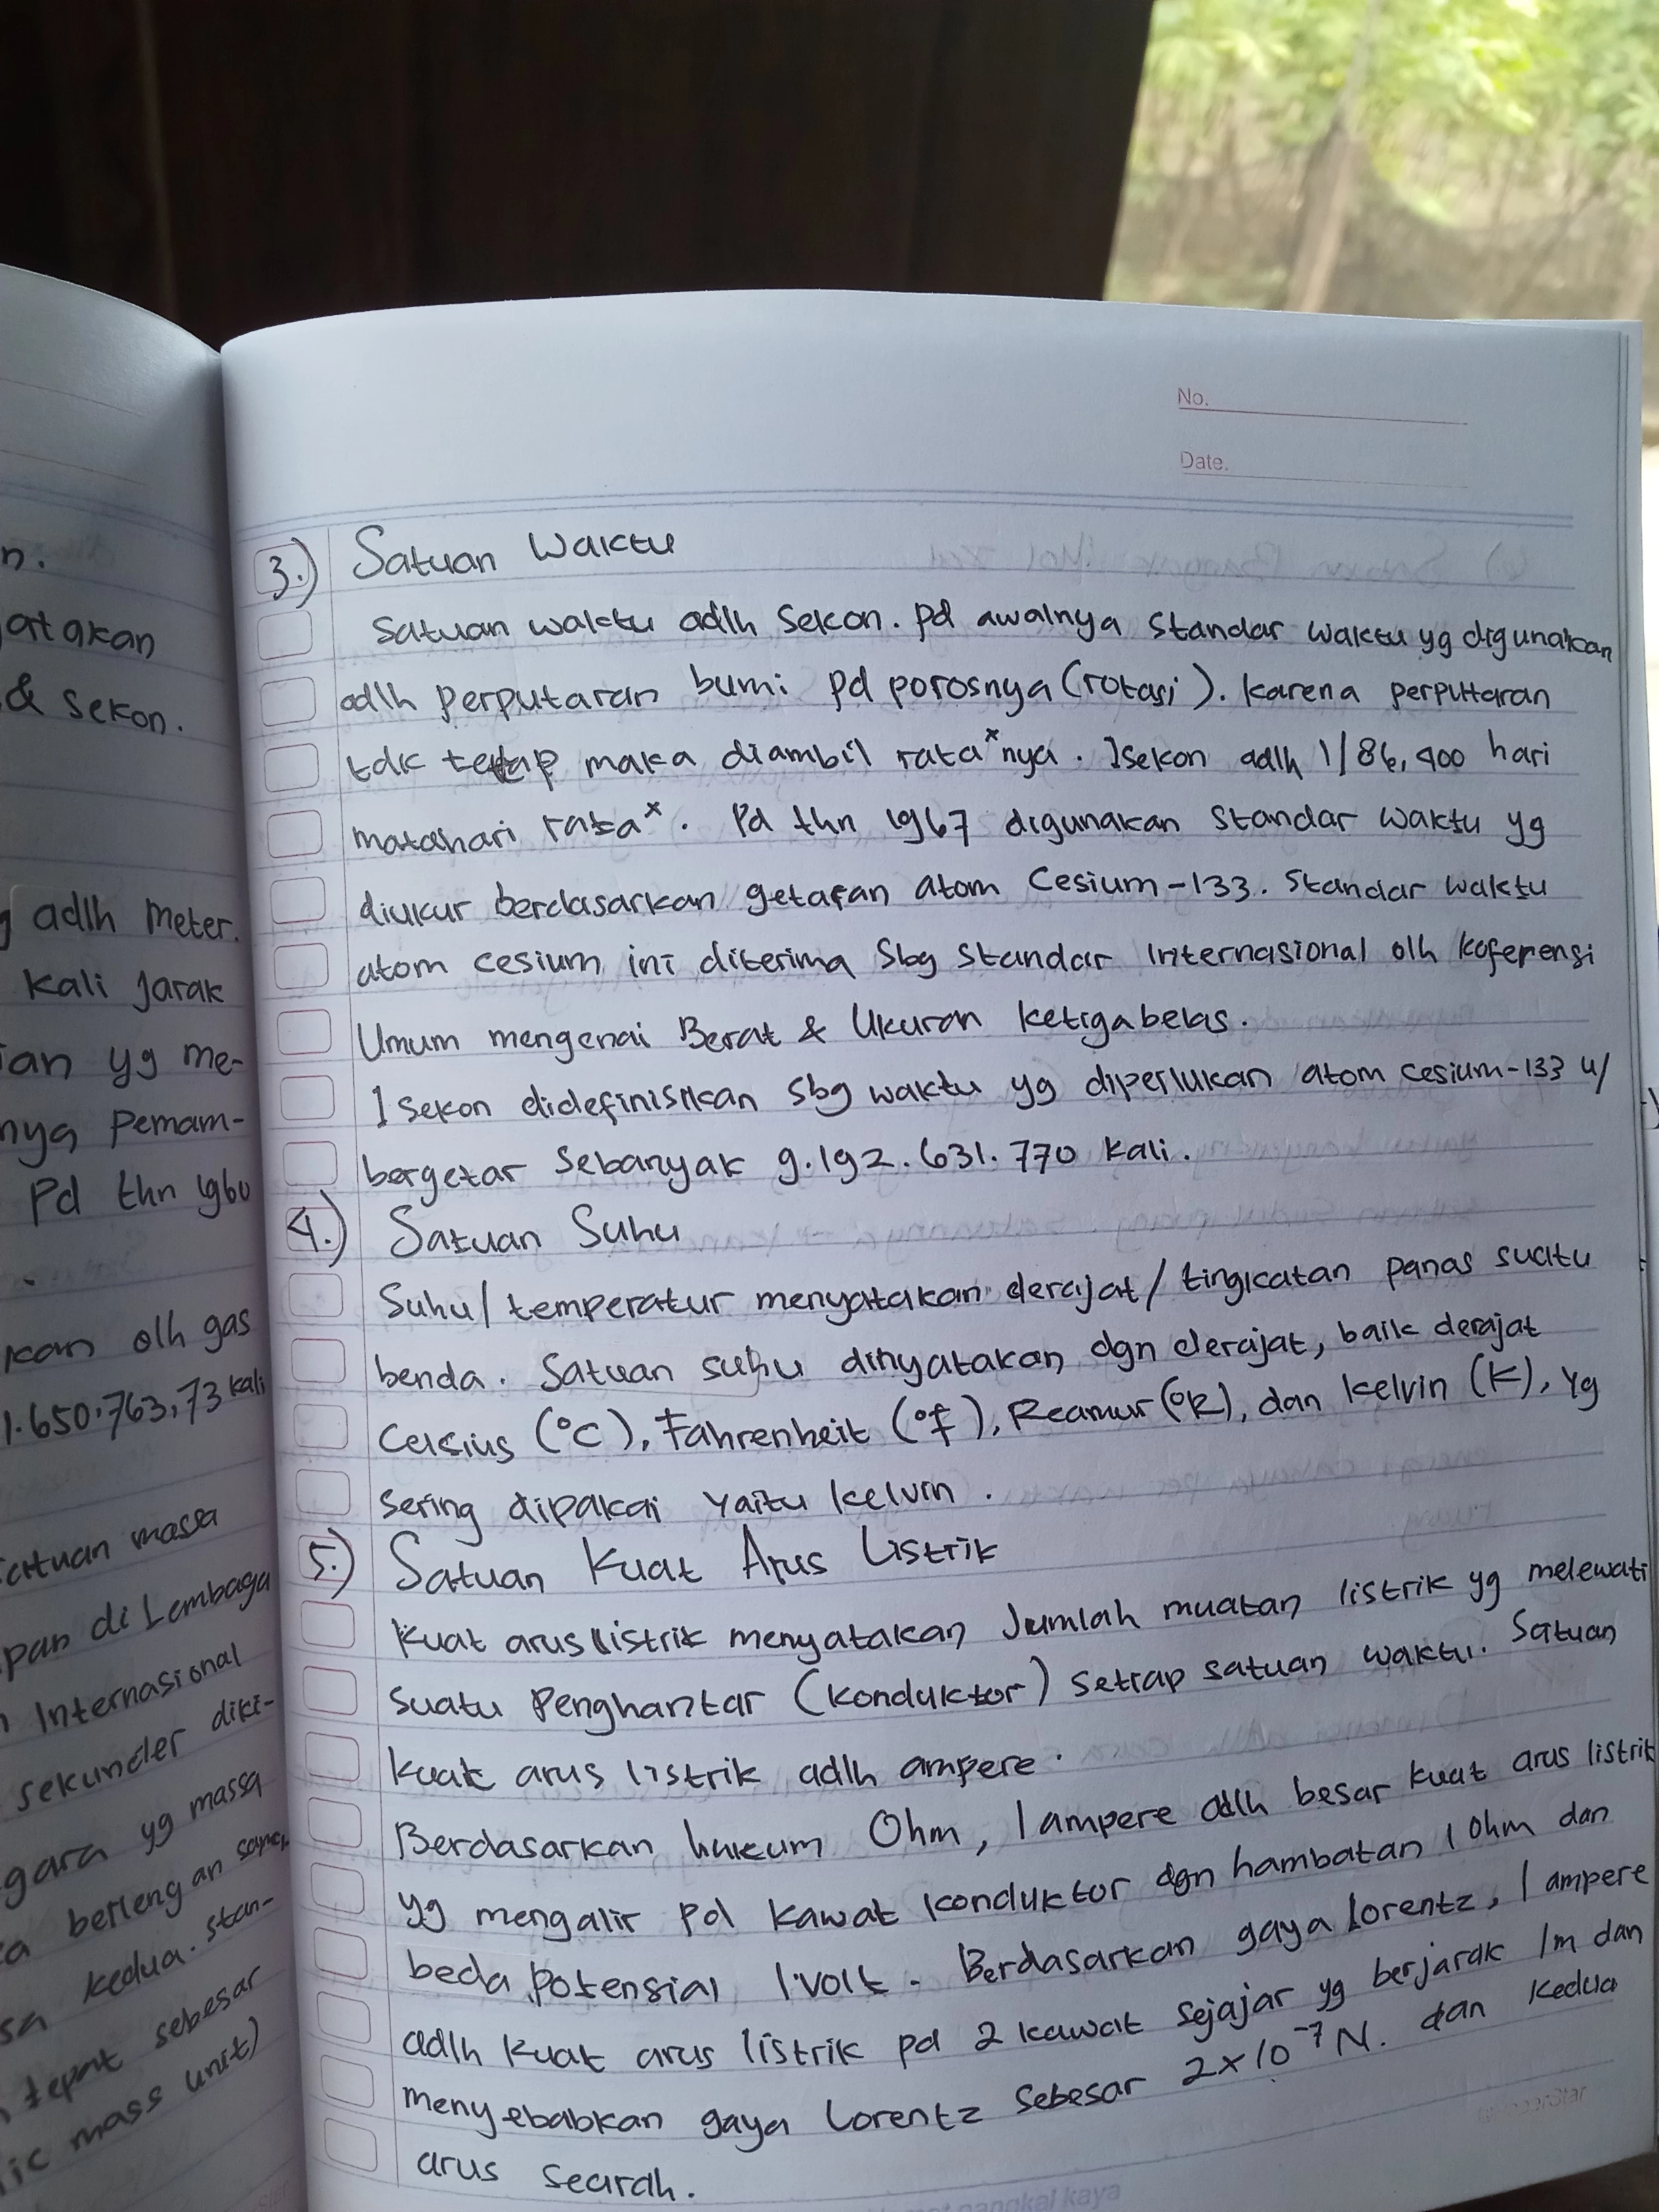 n.
atakan
& sekon.
adlh meter.
kali jarak
an yg me-
nya pemam-
Pd thn 1960
kan olh gas
1.650.763,73 kali
satuan massa
pan di Lembaga
Internasional
sekunder diki-
gara yg massa
berlengan sama
kedua. stan-
tepat sebesar
ic mass unit)
No.
Date.
3.) Satuan Waktu
Satuan waktu adlh sekon. pd awalnya standar waktu yg digunakan
adlh perputaran bumi pd porosnya (rotasi). karena perputaran
tdk tetap maka diambil rata ˣnya. 1sekon adlh 1/86,400 hari
matahari rataˣ. Pd thn 1967 digunakan standar waktu yg
diukur berdasarkan getaran atom Cesium-133. Standar waktu
atom cesium ini diterima sbg standar Internasional olh koferensi
Umum mengenai Berat & Ukuran ketigabelas.
1 sekon didefinisikan sbg waktu yg diperlukan atom cesium-133 u/
bergetar sebanyak 9.192.631.770 kali.
4.) Satuan Suhu
Suhu/temperatur menyatakan derajat/tingkatan panas suatu
benda. Satuan suhu dinyatakan dgn derajat, baik derajat
Celcius (°C), Fahrenheit (°F), Reamur (°R), dan kelvin (K), yg
sering dipakai yaitu kelvin.
5.) Satuan Kuat Arus Listrik
Kuat arus listrik menyatakan Jumlah muatan listrik yg melewati
suatu Penghantar (konduktor) setiap satuan waktu. Satuan
kuat arus listrik adlh ampere.
Berdasarkan hukum Ohm, 1 ampere adlh besar kuat arus listrik
yg mengalir pd kawat konduktor dgn hambatan 1 Ohm dan
beda potensial 1 volt. Berdasarkan gaya Lorentz, 1 ampere
adlh kuat arus listrik pd 2 kawat sejajar yg berjarak 1m dan
menyebabkan gaya Lorentz sebesar 2×10⁻⁷ N. dan kedua
arus searah.
pangkal kaya